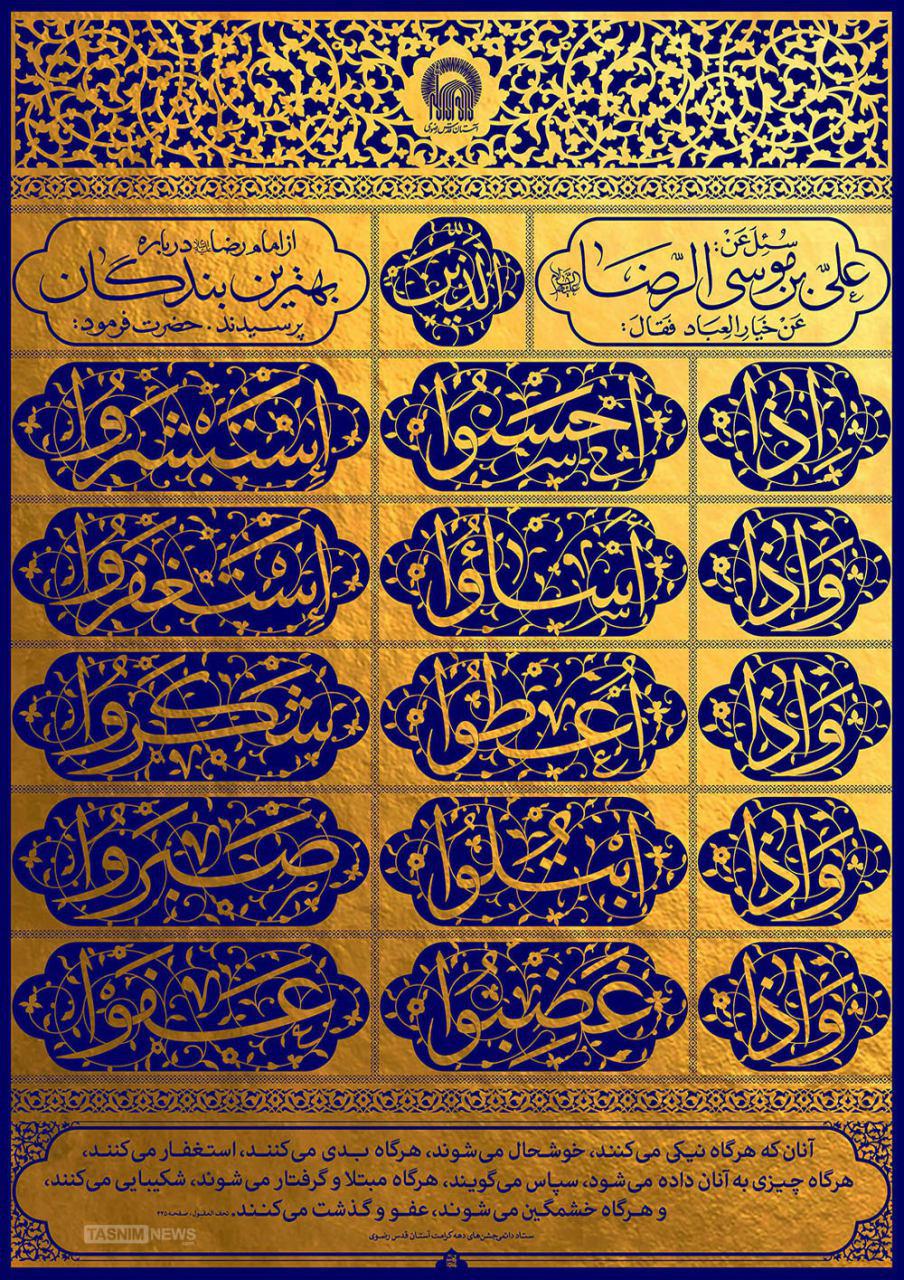 آستان قدس رضوی
سُئِلَ عَنْ:
علیّ بن موسی الرّضا علیهما السلام
عَنْ خیار العباد فَقالَ:
الَّذینَ
از امام رضا علیه السلام درباره
بهترین بندگان
پرسیدند. حضرت فرمود:
اِذا اَحْسَنُوا اِسْتَبْشَرُوا
وَاِذا اَساؤُا اِسْتَغْفَرُوا
وَاِذا اُعْطُوا شَکَرُوا
وَاِذا ابْتُلُوا صَبَرُوا
وَاِذا غَضِبُوا عَفَوْا
آنان که هرگاه نیکی می‌کنند، خوشحال می‌شوند، هرگاه بدی می‌کنند، استغفار می‌کنند،
هرگاه چیزی به آنان داده می‌شود، سپاس می‌گویند، هرگاه مبتلا و گرفتار می‌شوند، شکیبایی می‌کنند،
و هرگاه خشمگین می‌شوند، عفو و گذشت می‌کنند. تحف العقول، صفحه ۴۴۵
ستاد دائمی جشن‌های دهه کرامت آستان قدس رضوی
TASNIM NEWS